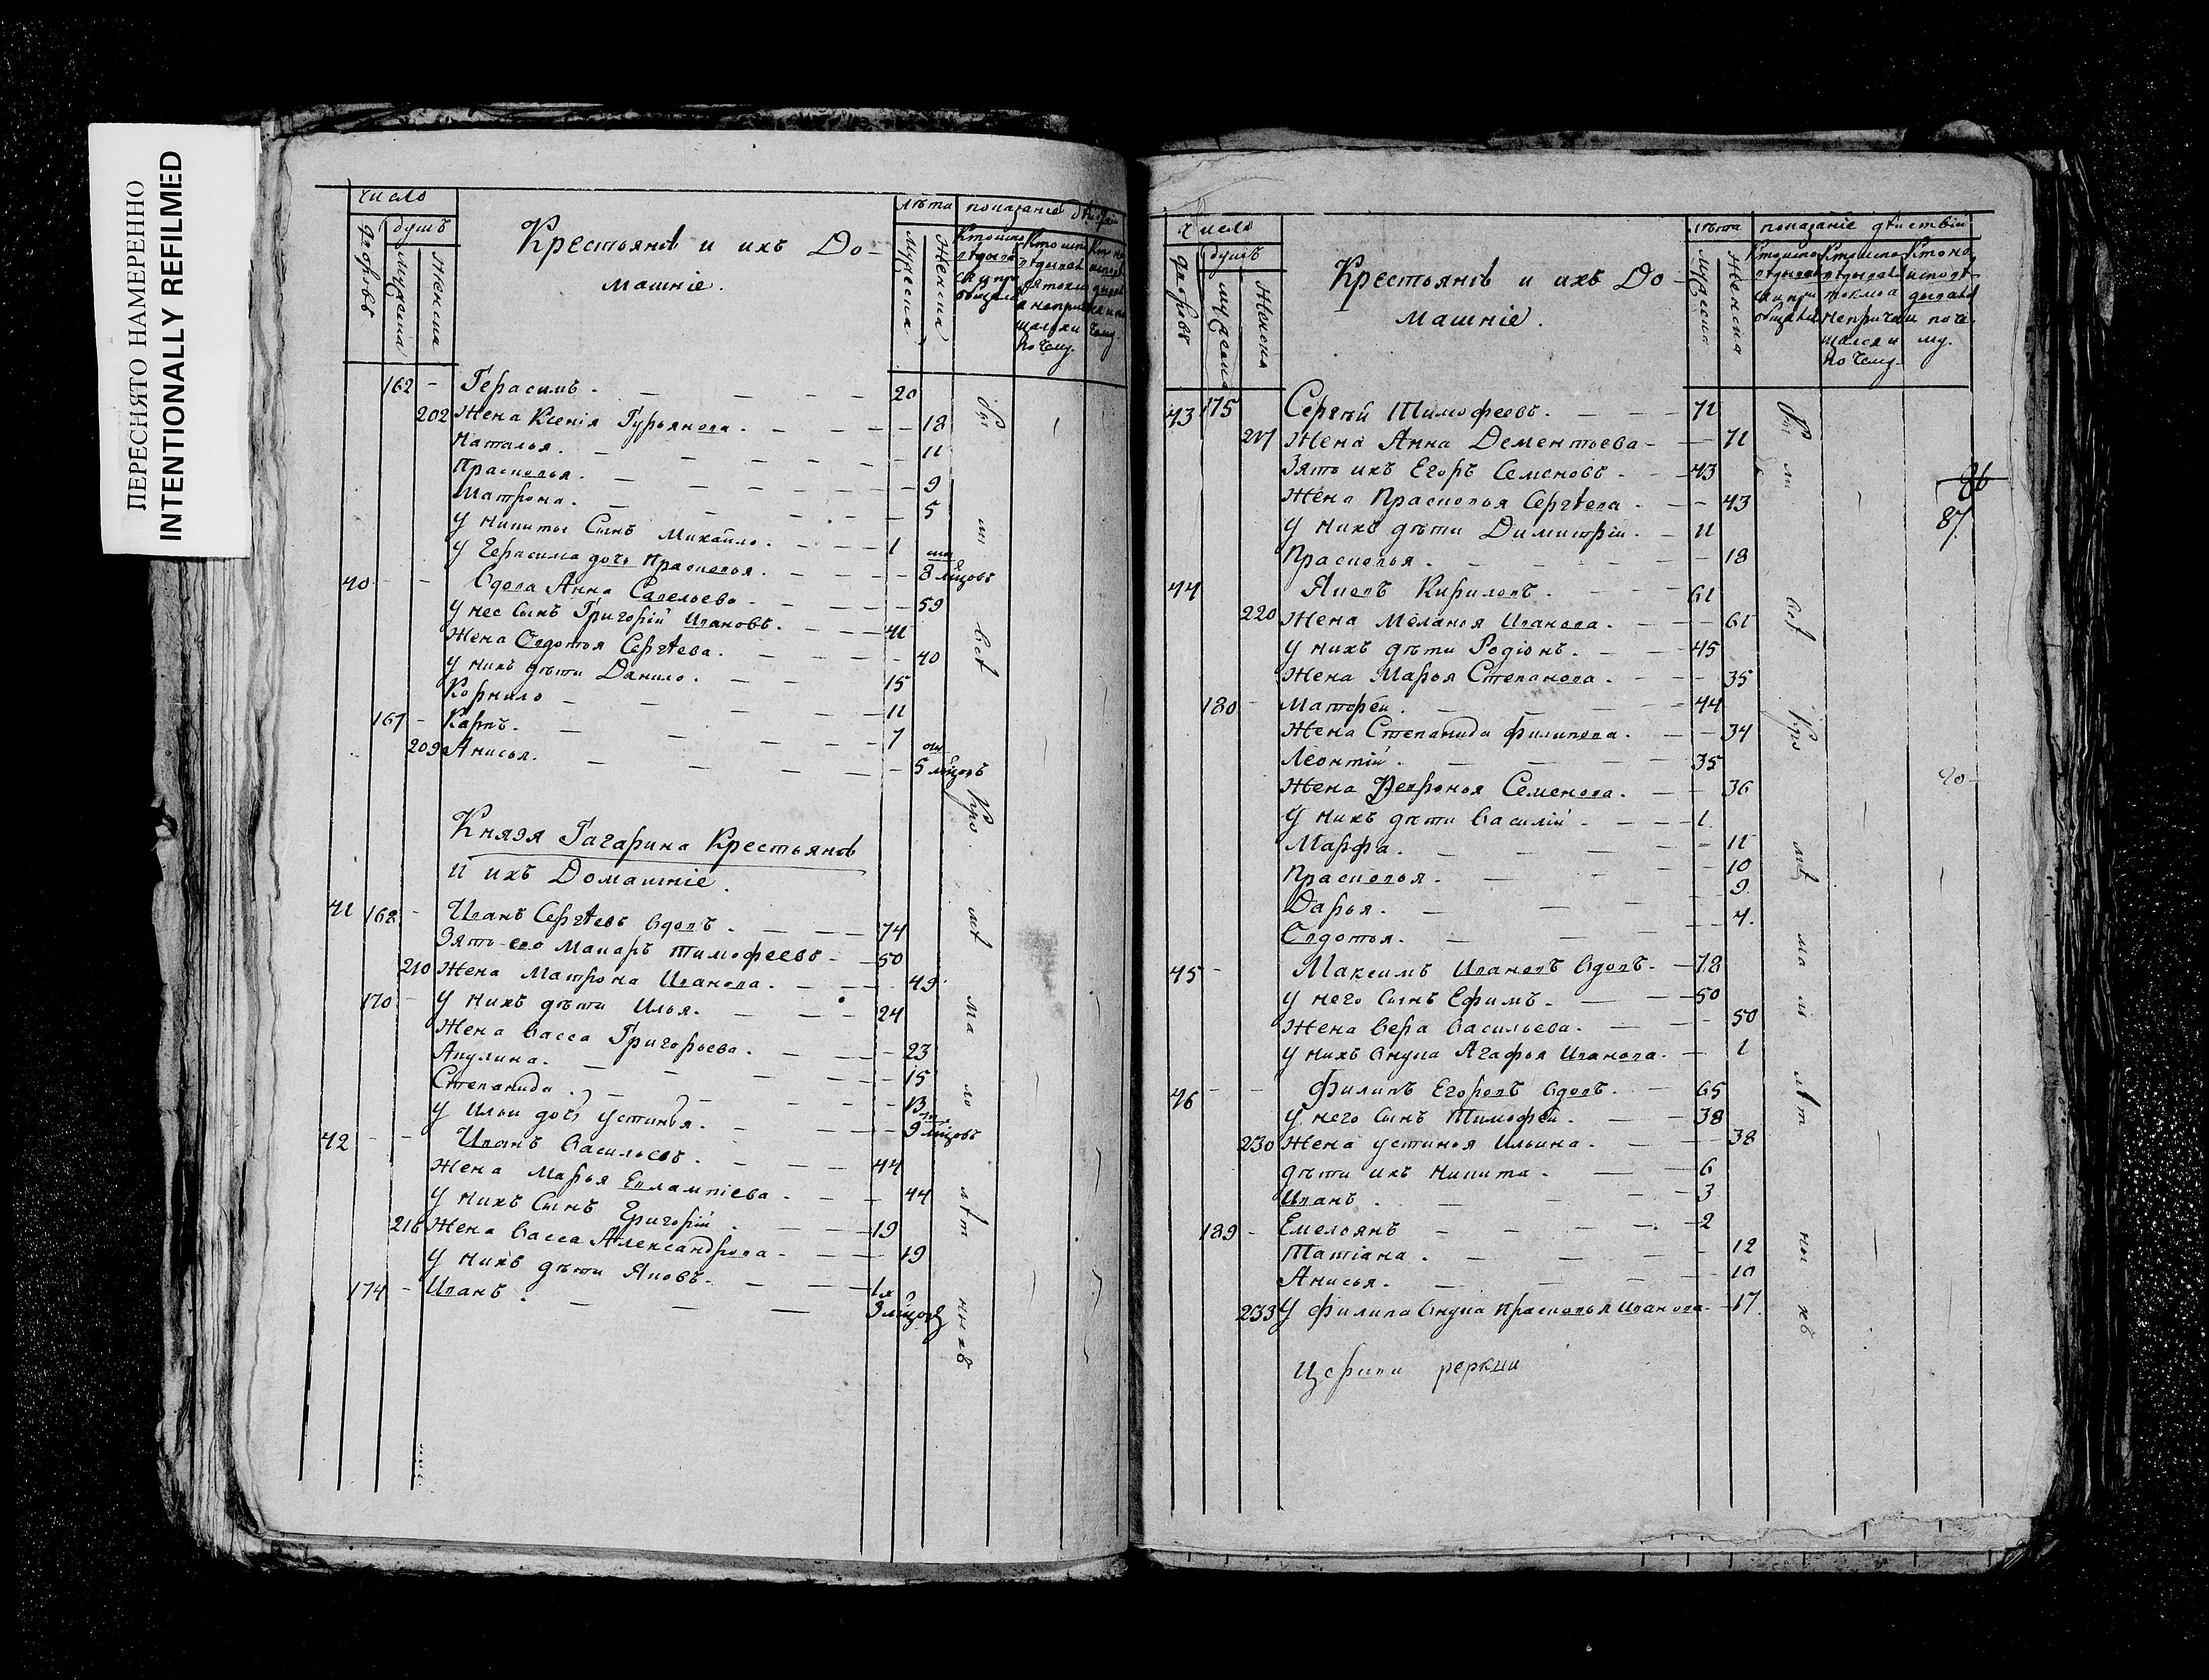 ПЕРЕСНЯТО НАМЕРЕННО
INTENTIONALLY REFILMED
число
душъ
дворовъ
мужеска
женска
Крестьянѣ и ихъ До-
машніе.
лѣта
мужеска
женска
показаніе
162 - Герасимъ. 20
202 Жена Ксенія Гурьянова. 18
Наталья. 11
Прасковья. 9
Матрона. 5
у Никиты Сынъ Михайло. 1
у Герасима дочь Прасковья. 8 мцовъ
40 Вдова Анна Савельева 59
у нее Сынъ Григорій Ивановъ. 41
Жена Овдотья Сергѣева. 40
у нихъ дѣти Данило. 15
Корнило 11
167 - Карпъ. 7
209 Анисья. 5 мцовъ
Князя Гагарина Крестьянѣ
и ихъ Домашніе.
41 168 - Иванъ Сергѣевъ вдовъ. 74
Зять ево Макаръ Тимофеевъ 50
210 Жена Матрона Иванова. 49
170 - у нихъ дѣти Илья. 24
Жена Васса Григорьева. 23
Акулина. 15
Степанида. 13
у Ильи дочь Устинья. 9 мцовъ
42 Иванъ Васильевъ. 44
Жена Марья Евлампіева. 44
у нихъ Сынъ Григорій 19
216 Жена Васса Александрова 19
у нихъ дѣти Яковъ. 1
174 - Иванъ. 3 мцовъ
число
душъ
дворовъ
мужеска
Женска
Крестьянѣ и ихъ До-
машніе.
лѣта
мужеска
Женска
показаніе дѣиствіи
43 175 Сергѣй Тимофеевъ. 71
217 Жена Анна Дементьева 71
Зять ихъ Егоръ Семеновъ. 43
Жена Прасковья Сергѣева 43
у нихъ дѣти Димитріи. 11
Прасковья. 18
87.
44 Яковъ Кириловъ. 61
220 Жена Меланья Иванова. 61
у нихъ дѣти Родіонъ. 45
Жена Марья Степанова. 35
180 - Матфеи. 44
Жена Степанида Филипова. 34
Леонтій. 35
Жена Февронья Семенова. 36
у нихъ дѣти Василій 1.
Марфа. 11
Прасковья. 10
Дарья. 9.
Овдотья. 4.
45 - Максимъ Ивановъ вдовъ. 78
у него Сынъ Ефимъ. 50
Жена Вера Васильева. 50
у нихъ внука Агафья Иванова. 1
46 Филипъ Егоровъ вдовъ. 65
у него Сынъ Тимофей. 38
230 Жена Устинья Ильина. 38
дѣти ихъ Никита. 6
Иванъ. 3
189 - Емельянъ 2
Татіана. 12
Анисья. 10
233 у Филипа внука Прасковья Иванова 17.